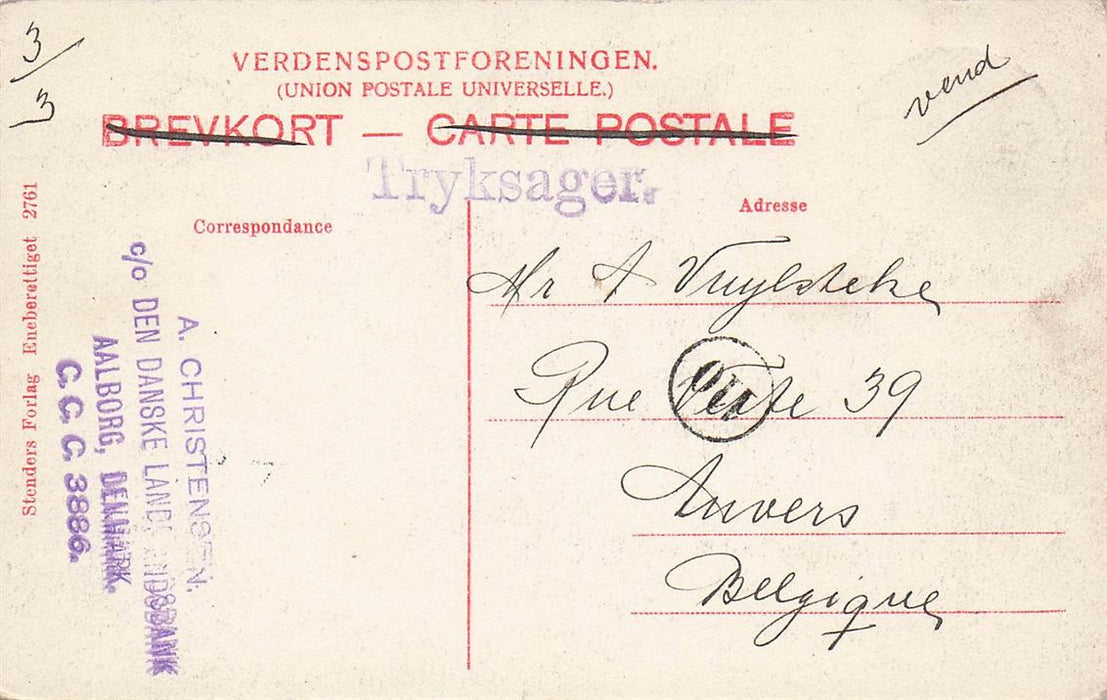 3/3
vend
VERDENSPOSTFORENINGEN.
(UNION POSTALE UNIVERSELLE.)
BREVKORT — CARTE POSTALE
Tryksager.
Correspondance
Adresse
Mr A Vuylsteke
Rue Verte 39
Anvers
Belgique
A. CHRISTENSEN.
c/o DEN DANSKE LANDMANDSBANK
AALBORG, DENMARK.
C. C. C. 3886.
Stenders Forlag Eneberettiget 2761